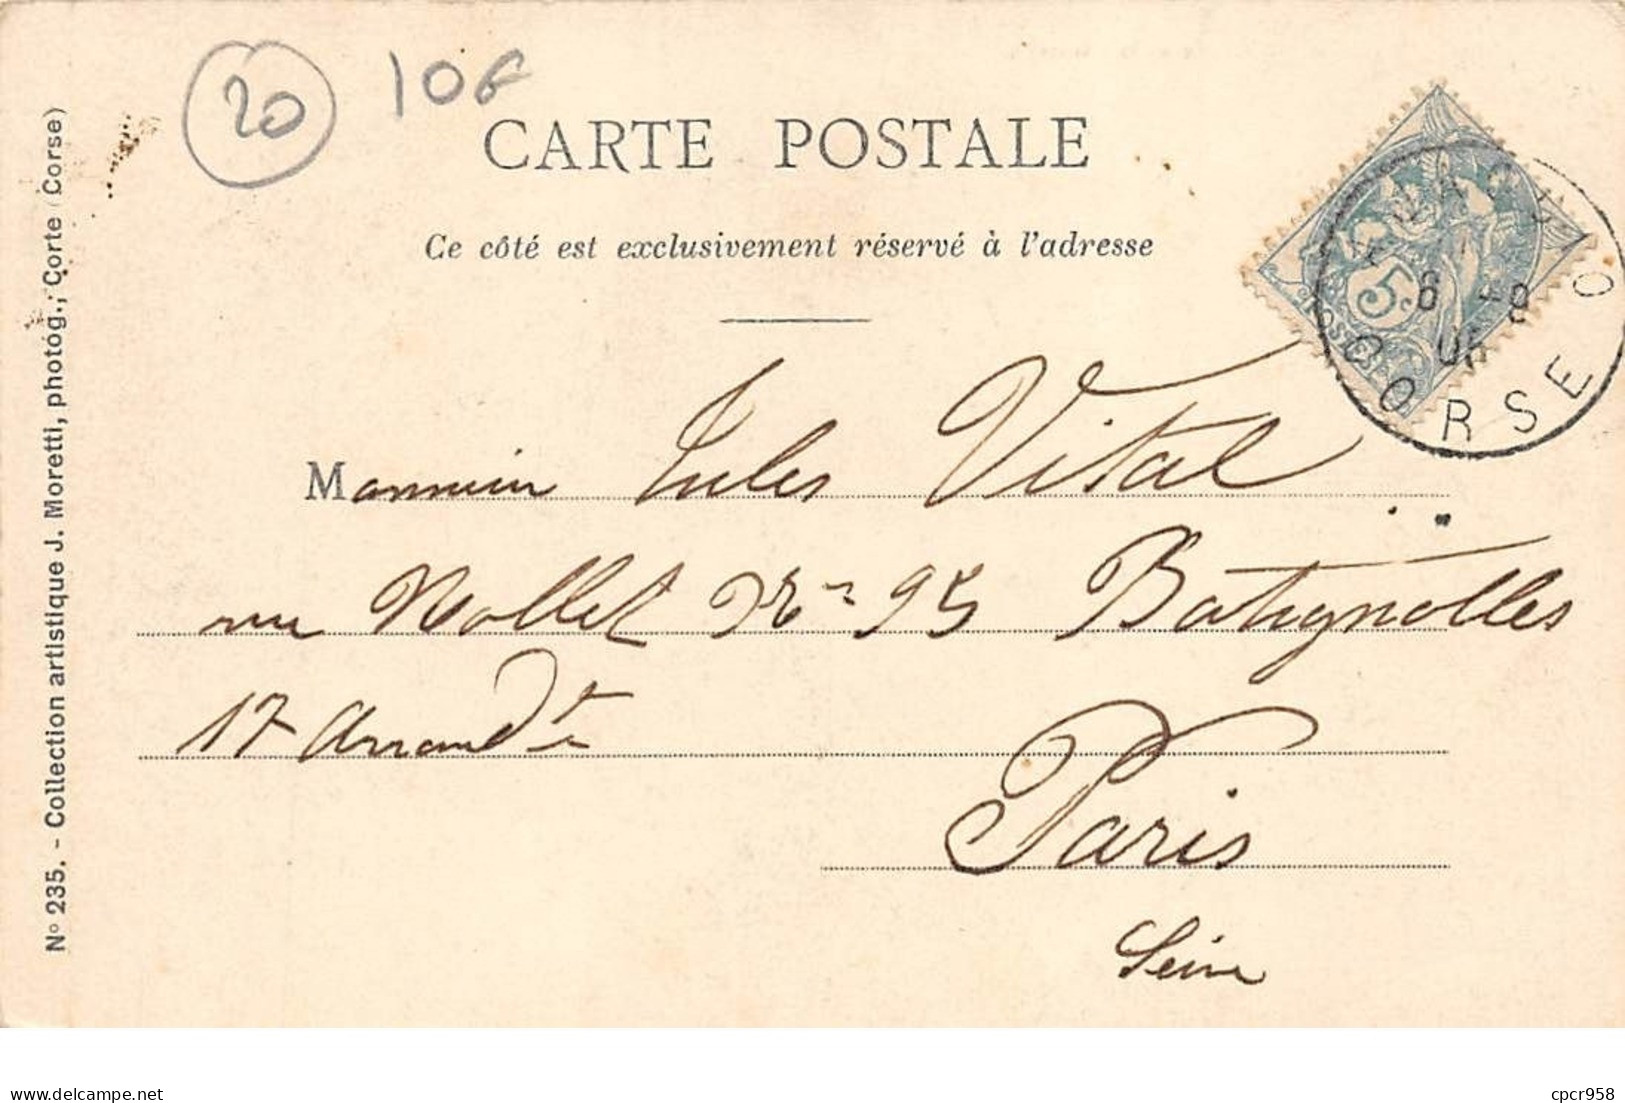 20 10f
CARTE POSTALE
Ce côté est exclusivement réservé à l'adresse
5c
POSTES
6 - 8
05
CORSE
Monsieur Jules Vital
rue Nollet No 95 Batignolles
17 Arrondt
Paris
Seine
No 235. - Collection artistique J. Moretti, photog., Corte (Corse)
delcampe.net
cpcr958